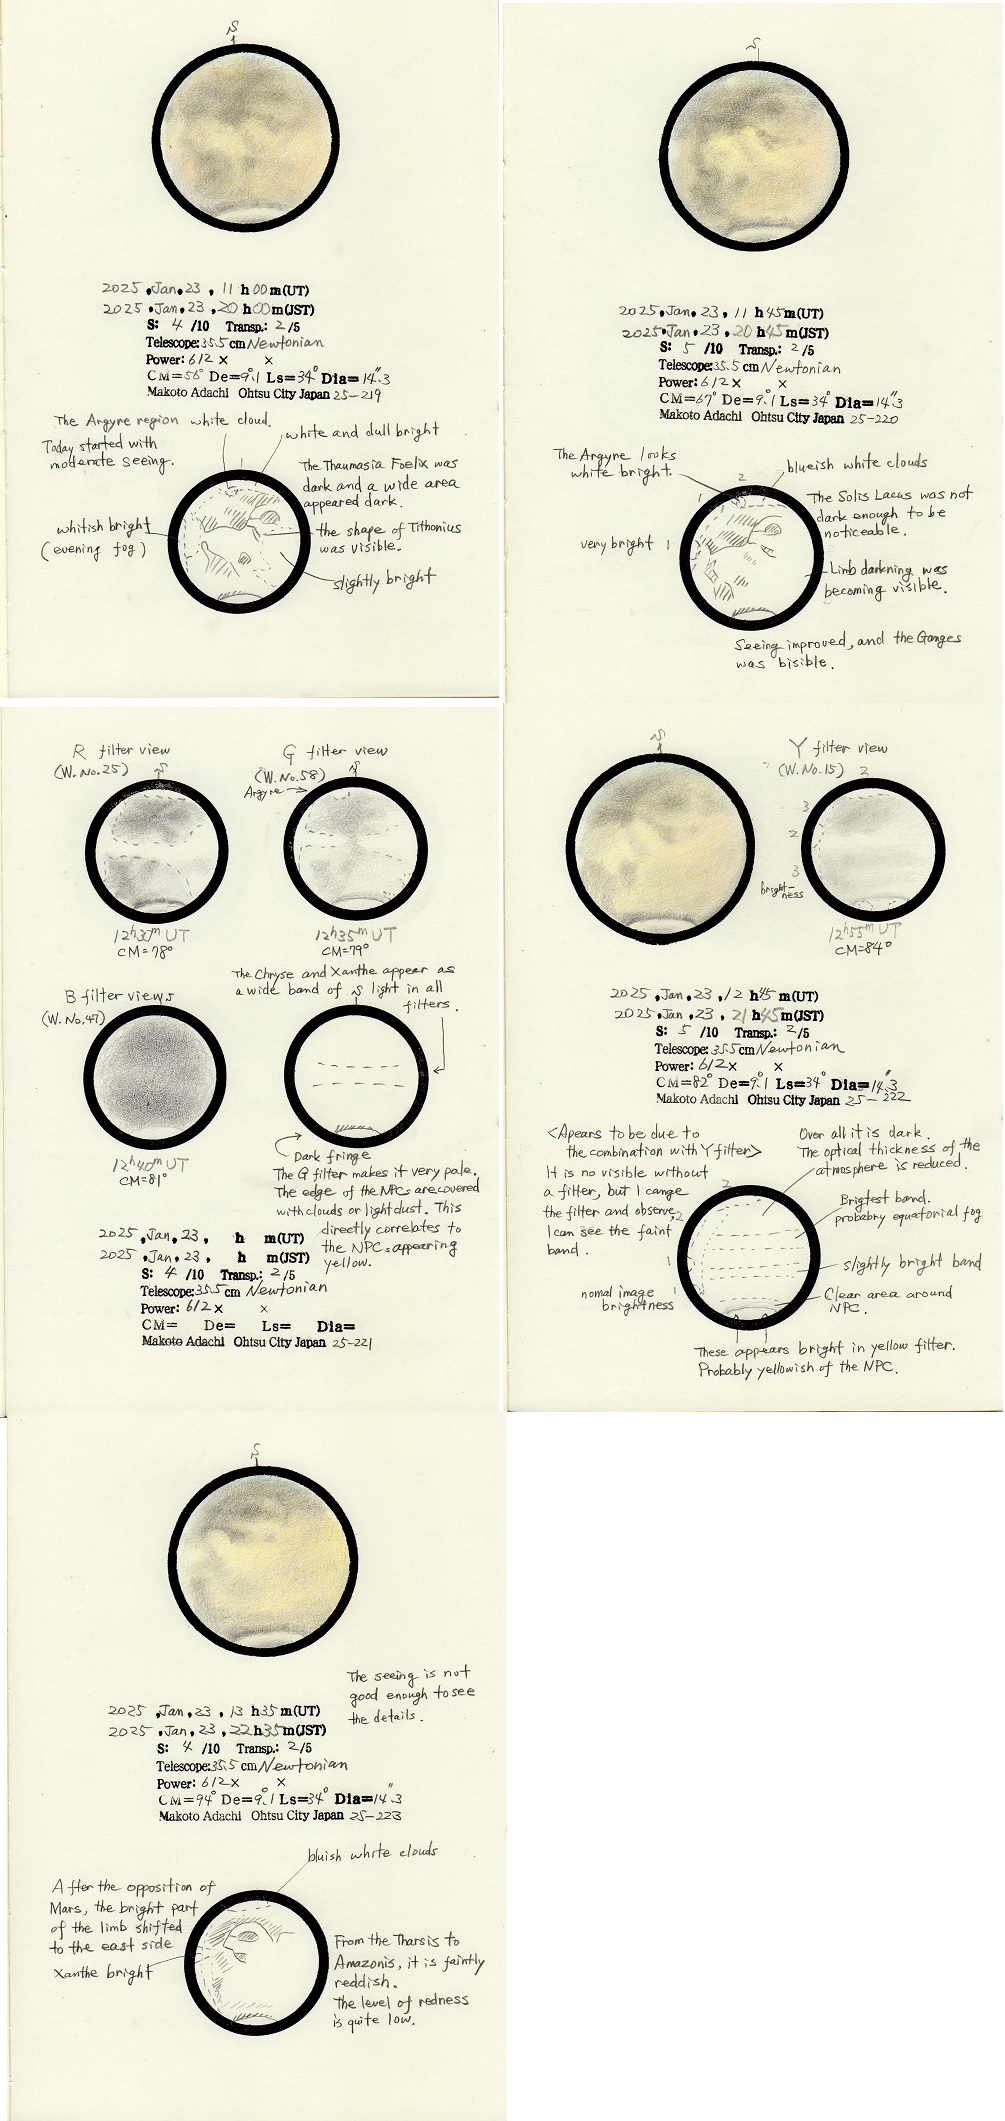 S
2025 . Jan. 23 , 11 h 00 m(UT)
2025 . Jan. 23 , 20 h 00 m(JST)
S: 4 /10 Transp.: 2 /5
Telescope: 35.5 cm Newtonian
Power: 612 × ×
CM=56° De=9.°1 Ls=34° Dia=14."3
Makoto Adachi Ohtsu City Japan 25-219
The Argyre region white cloud.
Today started with
moderate seeing.
white and dull bright
The Thaumasia Foelix was
dark and a wide area
appeared dark.
whitish bright
(evening fog)
the shape of Tithonius
was visible.
slightly bright
S
2025. Jan. 23 , 11 h 45 m(UT)
2025. Jan. 23 , 20 h 45 m(JST)
S: 5 /10 Transp.: 2 /5
Telescope: 35.5 cm Newtonian
Power: 612 × ×
CM=67° De=9.°1 Ls=34° Dia=14."3
Makoto Adachi Ohtsu City Japan 25-220
The Argyre looks
white bright.
2
blueish white clouds
1
The Solis Lacus was not
dark enough to be
noticeable.
very bright 1
Limb darkning was
becoming visible.
Seeing improved, and the Ganges
was bisible.
R filter view
(W. No.25)
S
G filter view
(W. No.58)
S
Argyre →
12h37m UT
CM=78°
12h35m UT
CM=79°
The Chryse and Xanthe appear as
a wide band of light in all
filters.
S
B filter views
(W. No.47)
12h40m UT
CM=81°
Dark fringe
The G filter makes it very pale.
The edge of the NPCs are covered
with clouds or light dust. This
directly correlates to
the NPCs appearing
yellow.
2025 . Jan. 23 , h m(UT)
2025 . Jan. 23 , h m(JST)
S: 4 /10 Transp.: 2 /5
Telescope: 35.5 cm Newtonian
Power: 612 × ×
CM= De= Ls= Dia=
Makoto Adachi Ohtsu City Japan 25-221
S
Y filter view
(W. No.15) 2
3
2
3
bright-
ness
12h55m UT
CM=84°
2025 . Jan. 23 , 12 h 45 m(UT)
2025 . Jan. 23 , 21 h 45 m(JST)
S: 5 /10 Transp.: 2 /5
Telescope: 35.5 cm Newtonian
Power: 612 × ×
CM=82° De=9.°1 Ls=34° Dia=14."3
Makoto Adachi Ohtsu City Japan 25-222
<Apears to be due to
the combination with Y filter>
It is no visible without
a filter, but I cange
the filter and observe,
I can see the faint
band.
Over all it is dark.
The optical thickness of the
atmosphere is reduced.
Brigtest band.
probabry equatorial fog
slightly bright band
Clear area around
NPC.
2
2
1
1
nomal image
brightness
These appears bright in yellow filter.
Probably yellowish of the NPC.
S
The seeing is not
good enough to see
the details.
2025 . Jan. 23 , 13 h 35 m(UT)
2025 . Jan. 23 , 22 h 35 m(JST)
S: 4 /10 Transp.: 2 /5
Telescope: 35.5 cm Newtonian
Power: 612 × ×
CM=94° De=9.°1 Ls=34° Dia=14."3
Makoto Adachi Ohtsu City Japan 25-223
bluish white clouds
After the opposition of
Mars, the bright part
of the limb shifted
to the east side
Xanthe bright
From the Tharsis to
Amazonis, it is faintly
reddish.
The level of redness
is quite low.